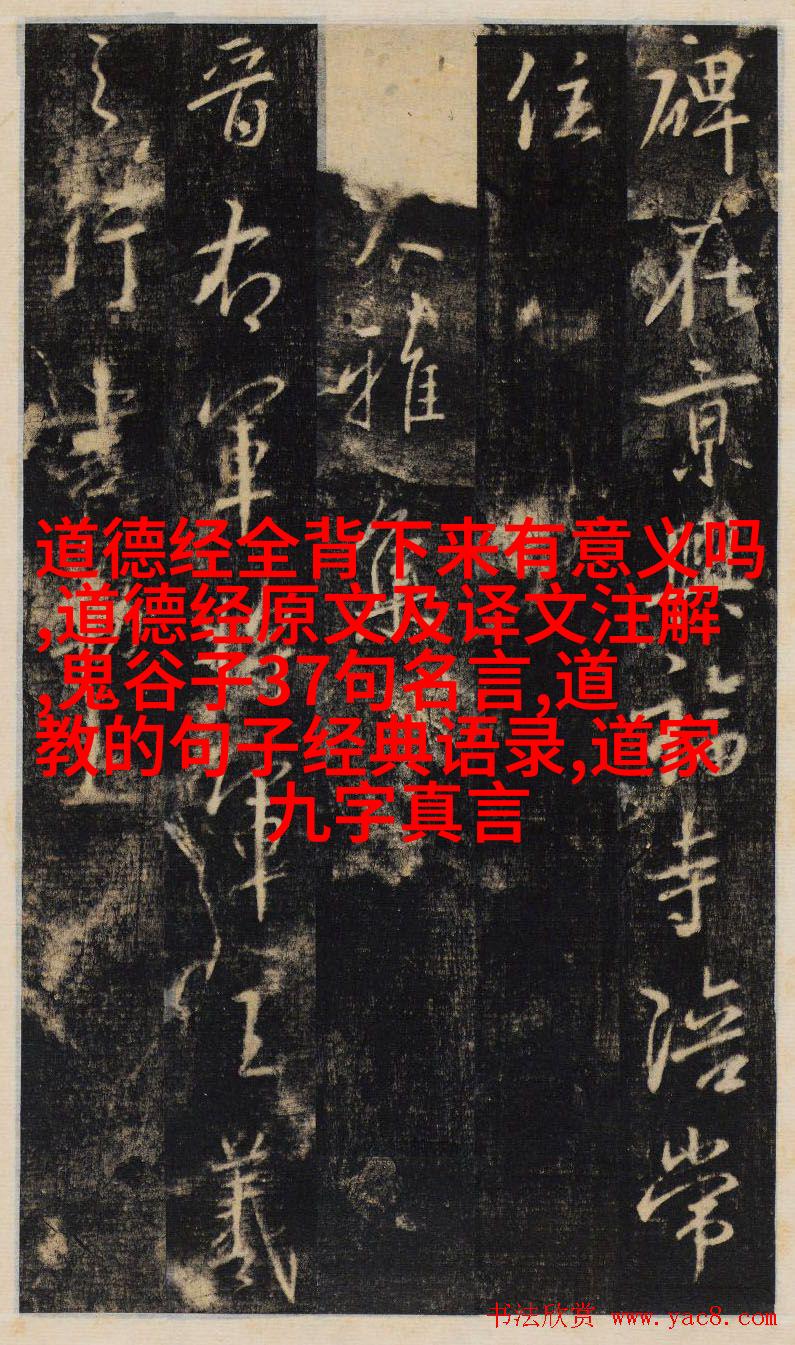 碑在京興福寺陪常
住
大雅集
晉右軍將軍王羲
之行書
道德经全背下来有意义吗
,道德经原文及译文注解
,鬼谷子37句名言,道
教的句子经典语录,道家
九字真言
书法欣赏 www.yac8.com